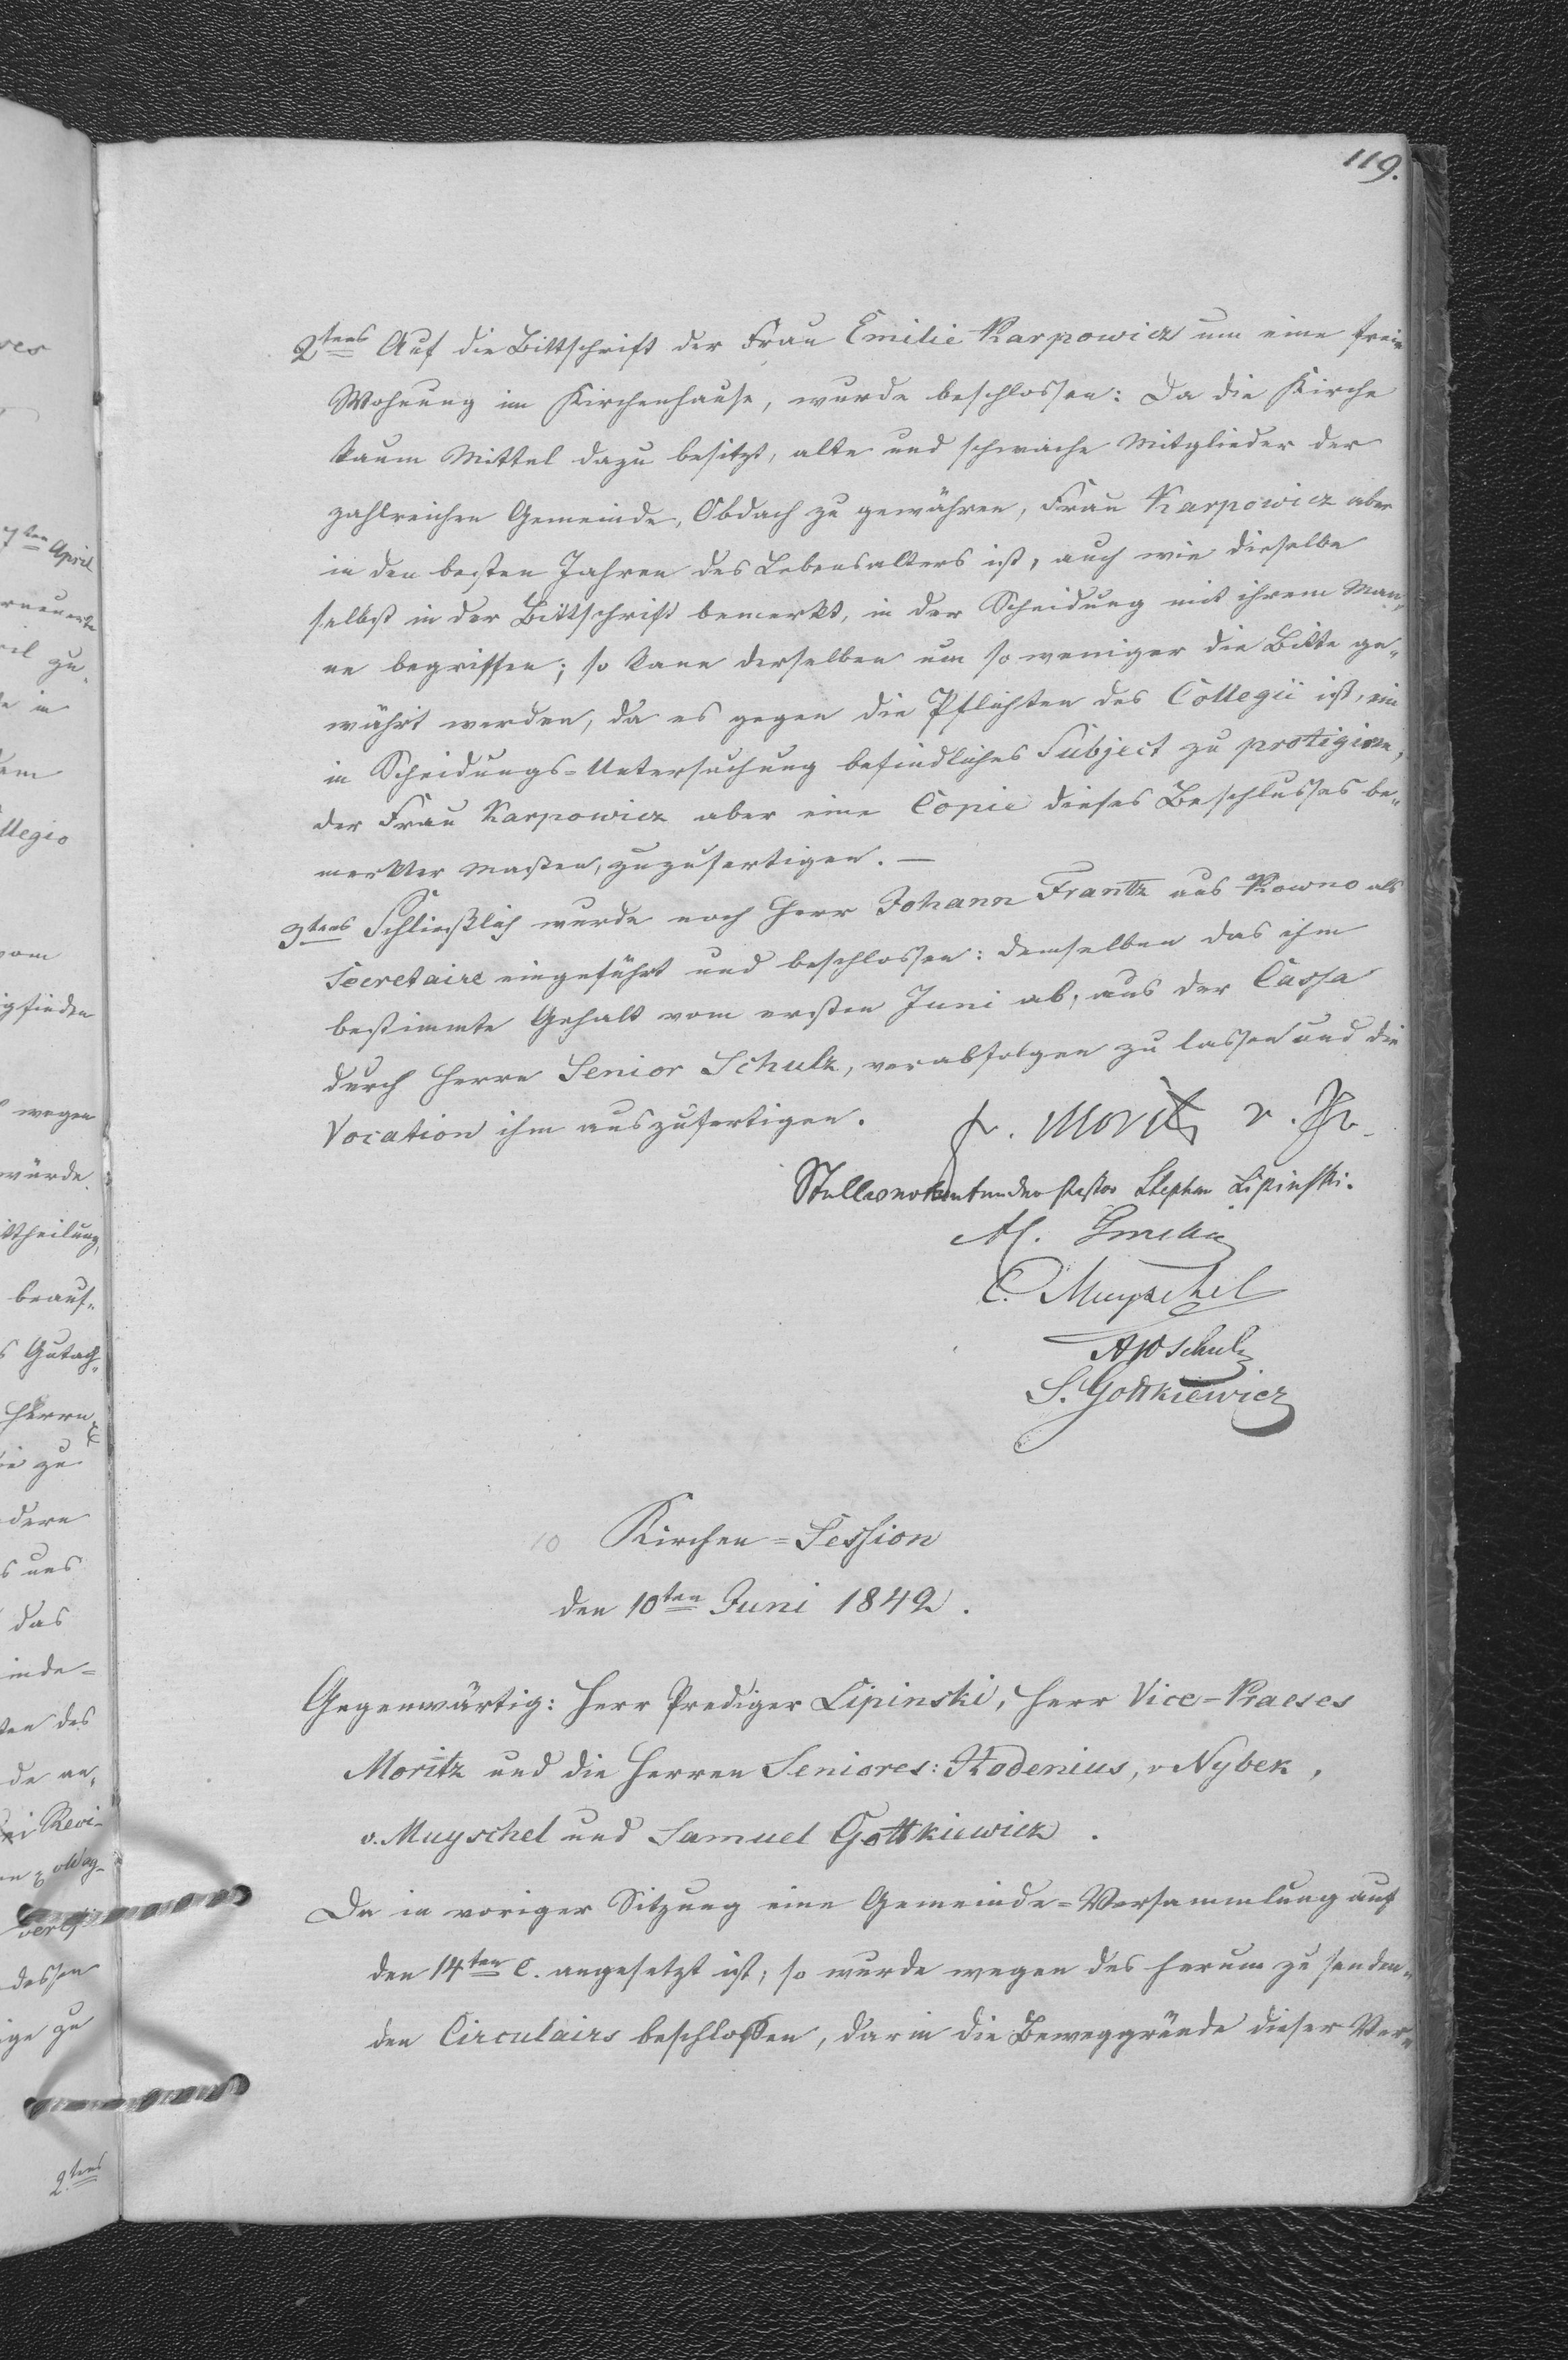 119.
2tens Auf die Bittschrift der Frau Emilie Karpowicz um eine freie
Wohnung im Kirchenhause, wurde beschlossen: Da die Kirche
kaum Mittel dazu besitzt, alte und schwache Mitglieder der
zahlreichen Gemeinde, Obdach zu gewähren, Frau Karpowicz aber
in den besten Jahren des Lebensalters ist, auch wie dieselbe
selbst in der Bittschrift bemerkt, in der Scheidung mit ihrem Man„
ne begriffen; so kann derselben um so weniger die Bitte ge„
währt werden, da es gegen die Pflichten des Collegii ist, ein
in Scheidungs-Untersuchung befindliches Subject zu protigiren,
der Frau Karpowicz aber eine Copie dieses Beschlusses be„
merkter masten, zuzufertigen. —
3tens Schließlich wurde noch Herr Johann Frantz aus Kowno als
Secretaire eingeführt und beschlossen: demselben das ihm
bestimmte Gehalt vom ersten Juni ab, aus der Cassa
durch Herrn Senior Schulz, verabfolgen zu lassen und die
Vocation ihm auszufertigen.
Moritz v. Pr.
Stellvertretender Pastor Stephan Lipinski.
C. Muyschel
AW Schulz
S. Gottkiewicz
10 Kirchen-Session
den 10ten Juni 1842.
Gegenwärtig: Herr Prediger Lipinski, Herr Vice-Praeses
Moritz und die Herren Seniores: Rodenius, v Nybek,
v. Muyschel und Samuel Gottkiewicz.
Da in voriger Sitzung eine Gemeinde-Versammlung auf
den 14ten c. angesetzt ist; so wurde wegen des herum zu senden„
den Circulairs beschlossen, darin die Beweggründe dieser Ver„
7ten April
zu
in
llegio
wegen
würde.
beauf„
Gutach„
Herrn
zu
uns
das
inde=
des
de an„
Revi-
dessen
zu
2tens